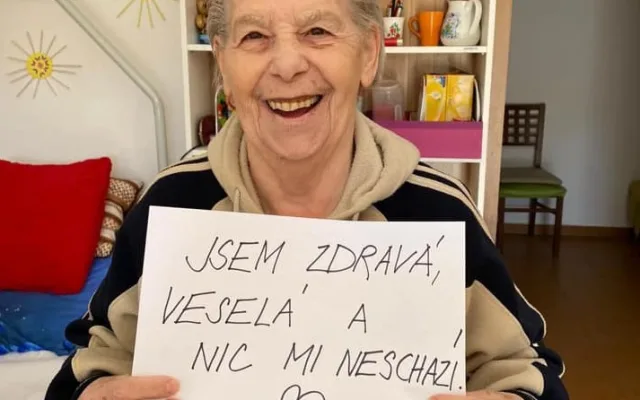 JSEM ZDRAVÁ,
VESELÁ A
NIC MI NESCHAZÍ.